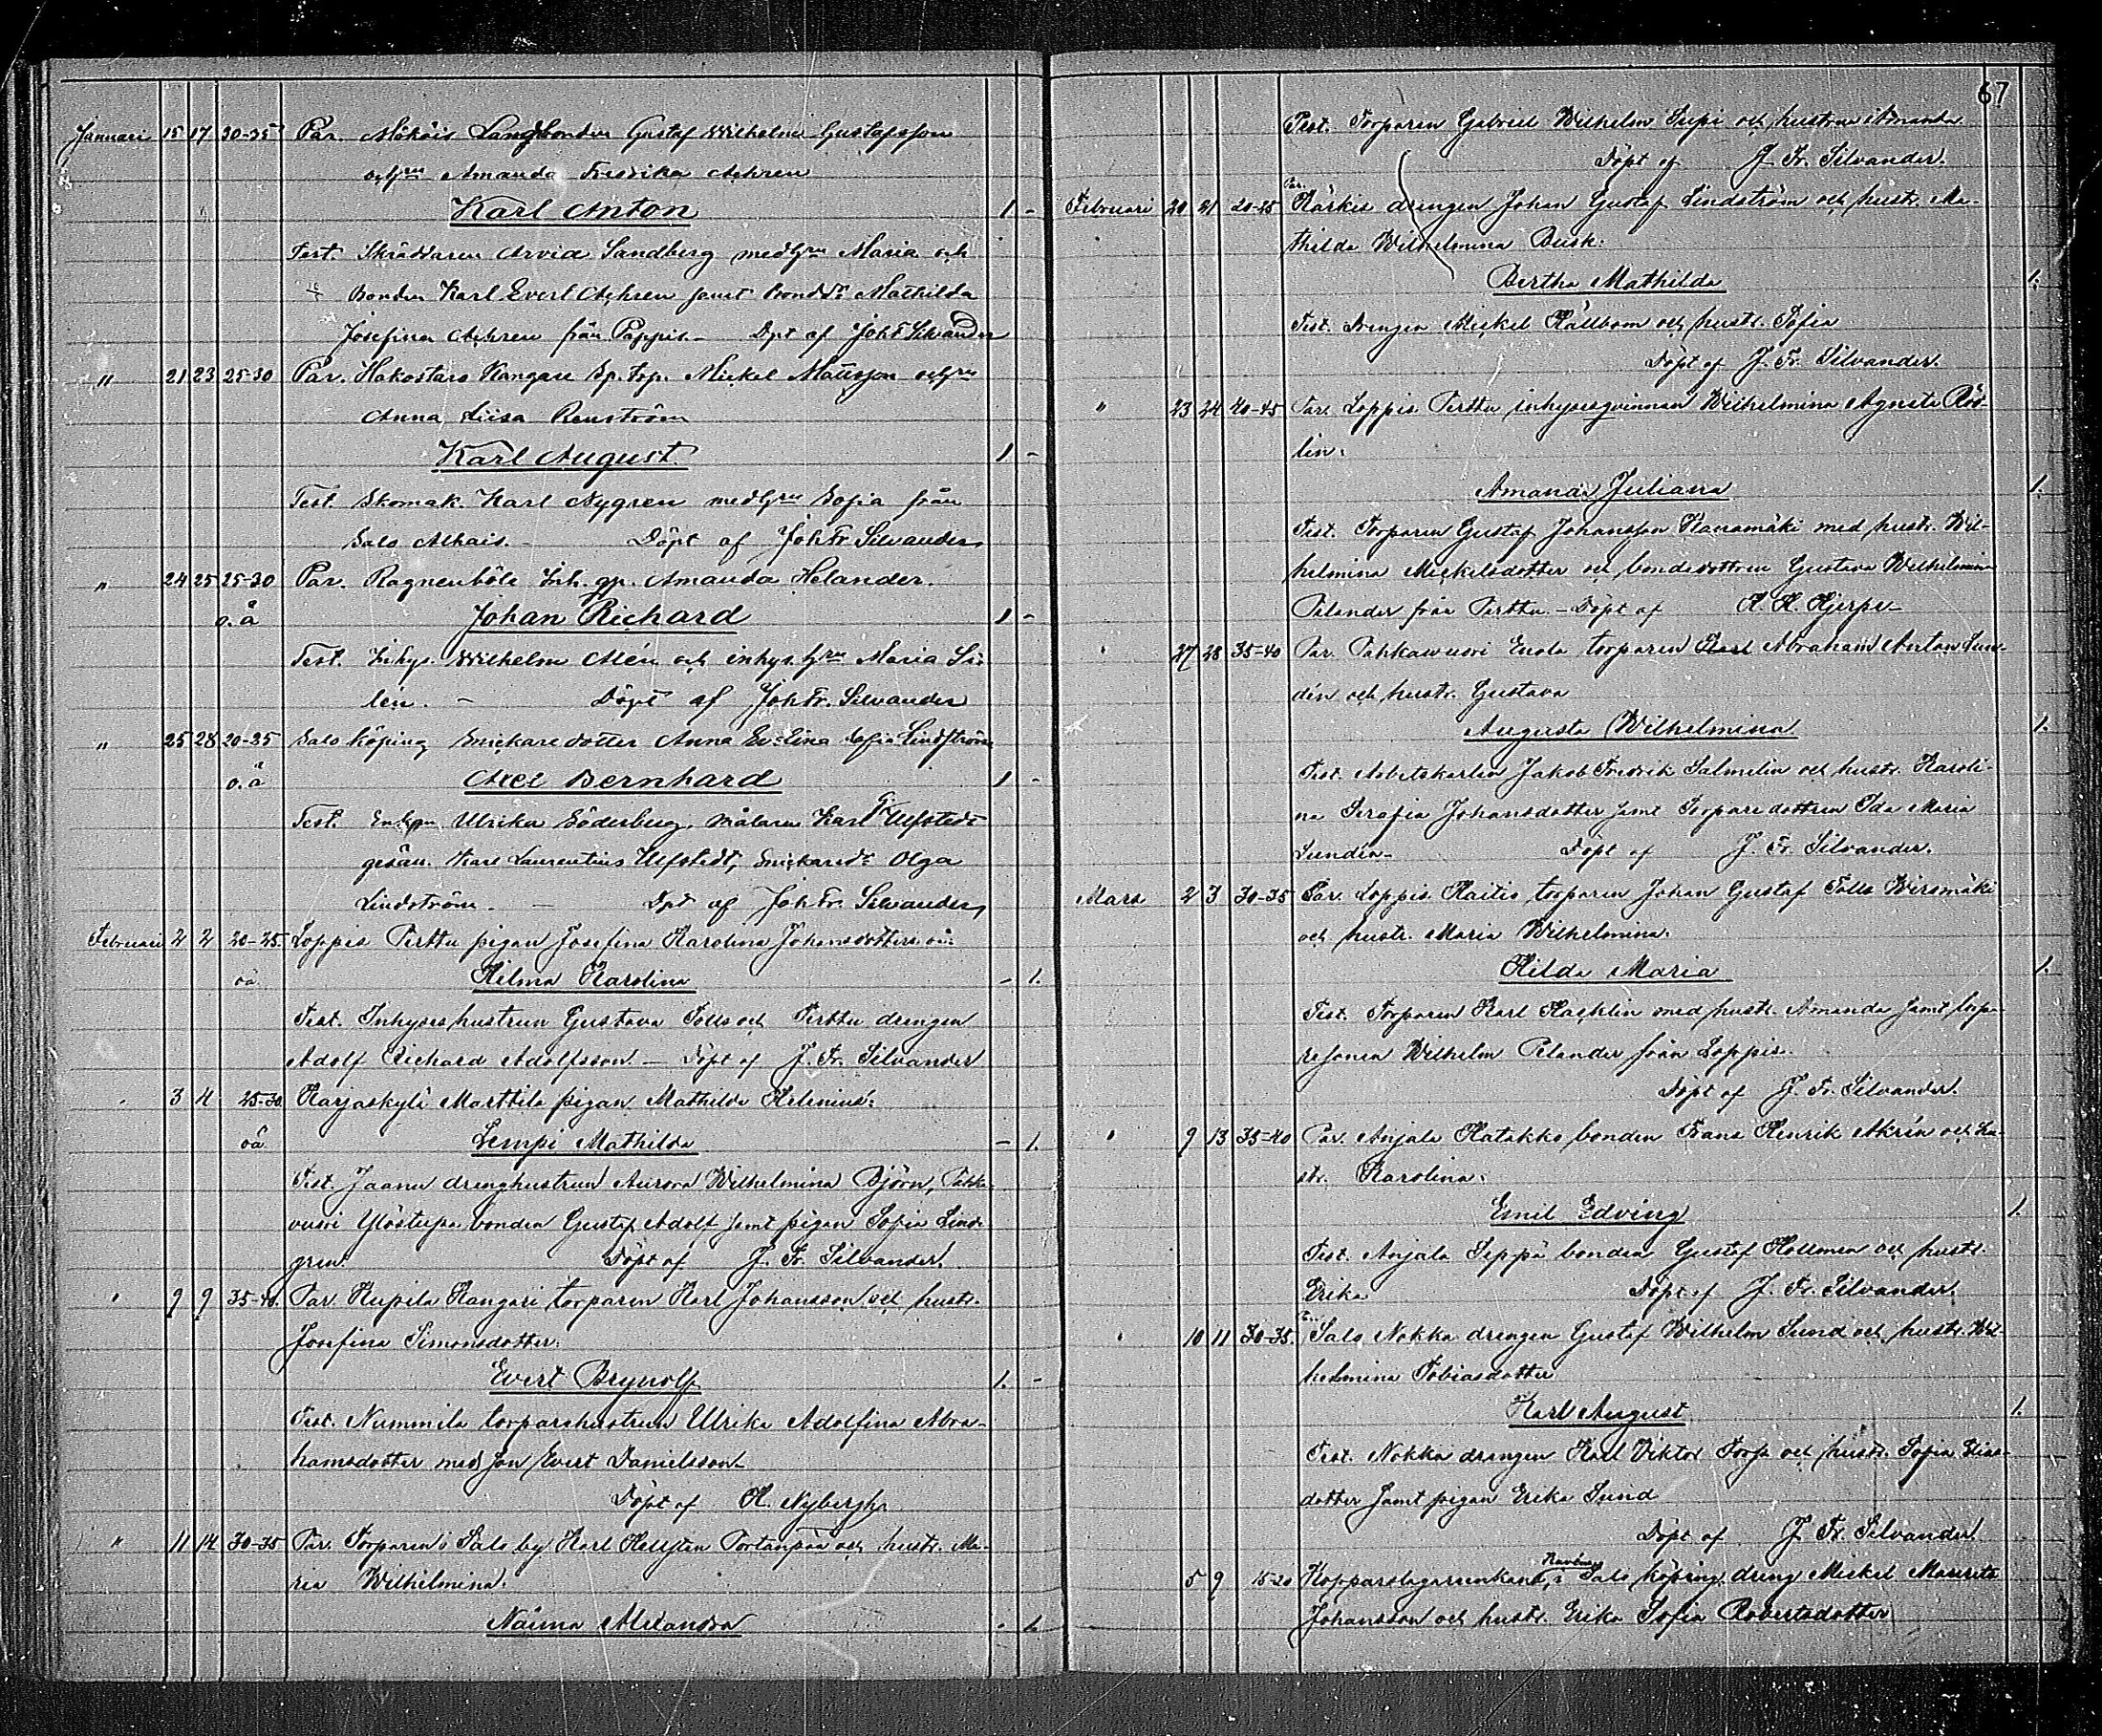 Januari 15 17 30-35 Par. Mökäis Landbonden Gustaf Wilhelm Gustafsson
och hru Amanda Fredrika Achren
Karl Anton 1 -
Test. Skräddaren Arvid Sandberg med hru Maria och
Bonden Karl Evert Achren samt bondedr Mathilda
Josefina Achren från Pappis. - Dpt af Joh F Silvander
" 21 23 25-30 Par. Hakostaro Kangare Sp. torp. Mickel Mattsson och hru
Anna Liisa Renström
Karl August 1 -
Test. Skomak. Karl Nygren med hru Sofia från
Salo Alhais. - Döpt af Joh Fr Silvander
" 24 25 25-30 Par. Ragnenböle Inh. qp. Amanda Helander.
o. ä Johan Richard 1 -
Test. Inhys. Wilhelm Alén och inhys. hru Maria Si-
lén. - Döpt af Joh Fr. Silvander
" 25 28 20-25 Salo Köping Snickare dotter Anna Evelina Sofia Lindström
o. ä Axel Bernhard 1 -
Test. Enkan Ulrika Söderberg, målaren Karl G Ulfstedt
gesäll. Karl Laurentius Ulfstedt, Snickaredr Olga
Lindström. - Dpt af Joh Fr. Silvander
Februari 2 2 20-25 Loppis Perttu pigan Josefina Karolina Johansdotters oä:
oä Hilma Karolina - 1.
Test. Inhyses hustrun Gustava Tolls och Perttu drengen
Adolf Richard Adolfsson. — Döpt af J. Fr. Silvander
3 4 25-30 Karjaskylä Marttila pigan Mathilda Helenius:
oä Lempi Mathilda - 1.
Test. Jaanu drenghustrun Aurora Wilhelmina Björn, Pahka-
vuori Ylöstupa bonden Gustaf Adolf samt pigan Sofia Lind-
gren. Döpt af J. Fr. Silvander.
" 9 9 35-40. Par. Kupila Kangari torparen Karl Johansson och hustr.
Josefina Simonsdotter:
Evert Brynolf 1. -
Test. Nummila torparehustrun Ulrika Adolfina Abra-
hamsdotter med son Evert Danielsson
Döpt af K. Nybergh.
" 11 14 30-35 Par. Torparen i Salo by Karl Hellsten Tortanpää och hustr. Ma-
ria Wilhelmina.
Naima Alexandra - 1.
67
Test. Torparen Gabriel Wilhelm Supi och hustrun Amanda
Döpt af J. Fr. Silvander.
Februari 20 21 20-25 Par. Kärkis drengen Johan Gustaf Lindström och hustr. Ma-
thilda Wilhelmina Busk:
Bertha Mathilda 1.
Test. Drengen Mickel Källbom och hustr. Sofia
Döpt af J. Fr. Silvander.
" 23 24 40-45 Par. Loppis Perttu inhysesqvinnan Wilhelmina Agneta Rös-
lin:
Amanda Juliana 1.
Test. Torparen Gustaf Johansson Hansamäki med hustr. Wil-
helmina Mickelsdotter och bondedottren Gustava Wilhelmina
Pelander från Perttu. - Döpt af K. H. Hjerpe
" 27 28 35-40 Par. Pahkawuori Enola torparen Karl Abraham Anton Lun-
dén och hustr. Gustava
Augusta Wilhelmina 1.
Test. Arbetskarlen Jakob Fredrik Salmelin och hustr. Karoli-
na Serafia Johansdotter samt Torparedottren Ida Maria
Lundén. Döpt af J. Fr. Silvander.
Mars 2 3 30-35 Par. Loppis Kaitis torparen Johan Gustaf Tolls Wirsmäki
och hustr. Maria Wilhelmina.
Hilda Maria 1.
Test. Torparen Karl Hacklin med hustr. Amanda samt torpa-
resonen Wilhelm Pelander från Loppis.
Döpt af J. Fr. Silvander.
" 9 13 35-40 Par. Anjala Katakko bonden Frans Henrik Akrén och hu-
str. Karolina:
Emil Edving 1.
Test. Anjala Seppä bonden Gustaf Hollmen och hustr.
Erika Döpt af J. Fr. Silvander.
" 10 11 30-35. Salo Nokka drengen Gustaf Wilhelm Sund och hustr. Wil-
helmina Tobiasdotter
Karl August 1.
Test. Nokka drengen Karl Viktor Torp och hustr. Sofia Elias-
dotter samt pigan Erika Sund
Döpt af J. Fr. Silvander.
5 9 15-20 i Salo köping dreng Mickel Maurits
Johansson och hustr. Erika Sofia Robertsdotter